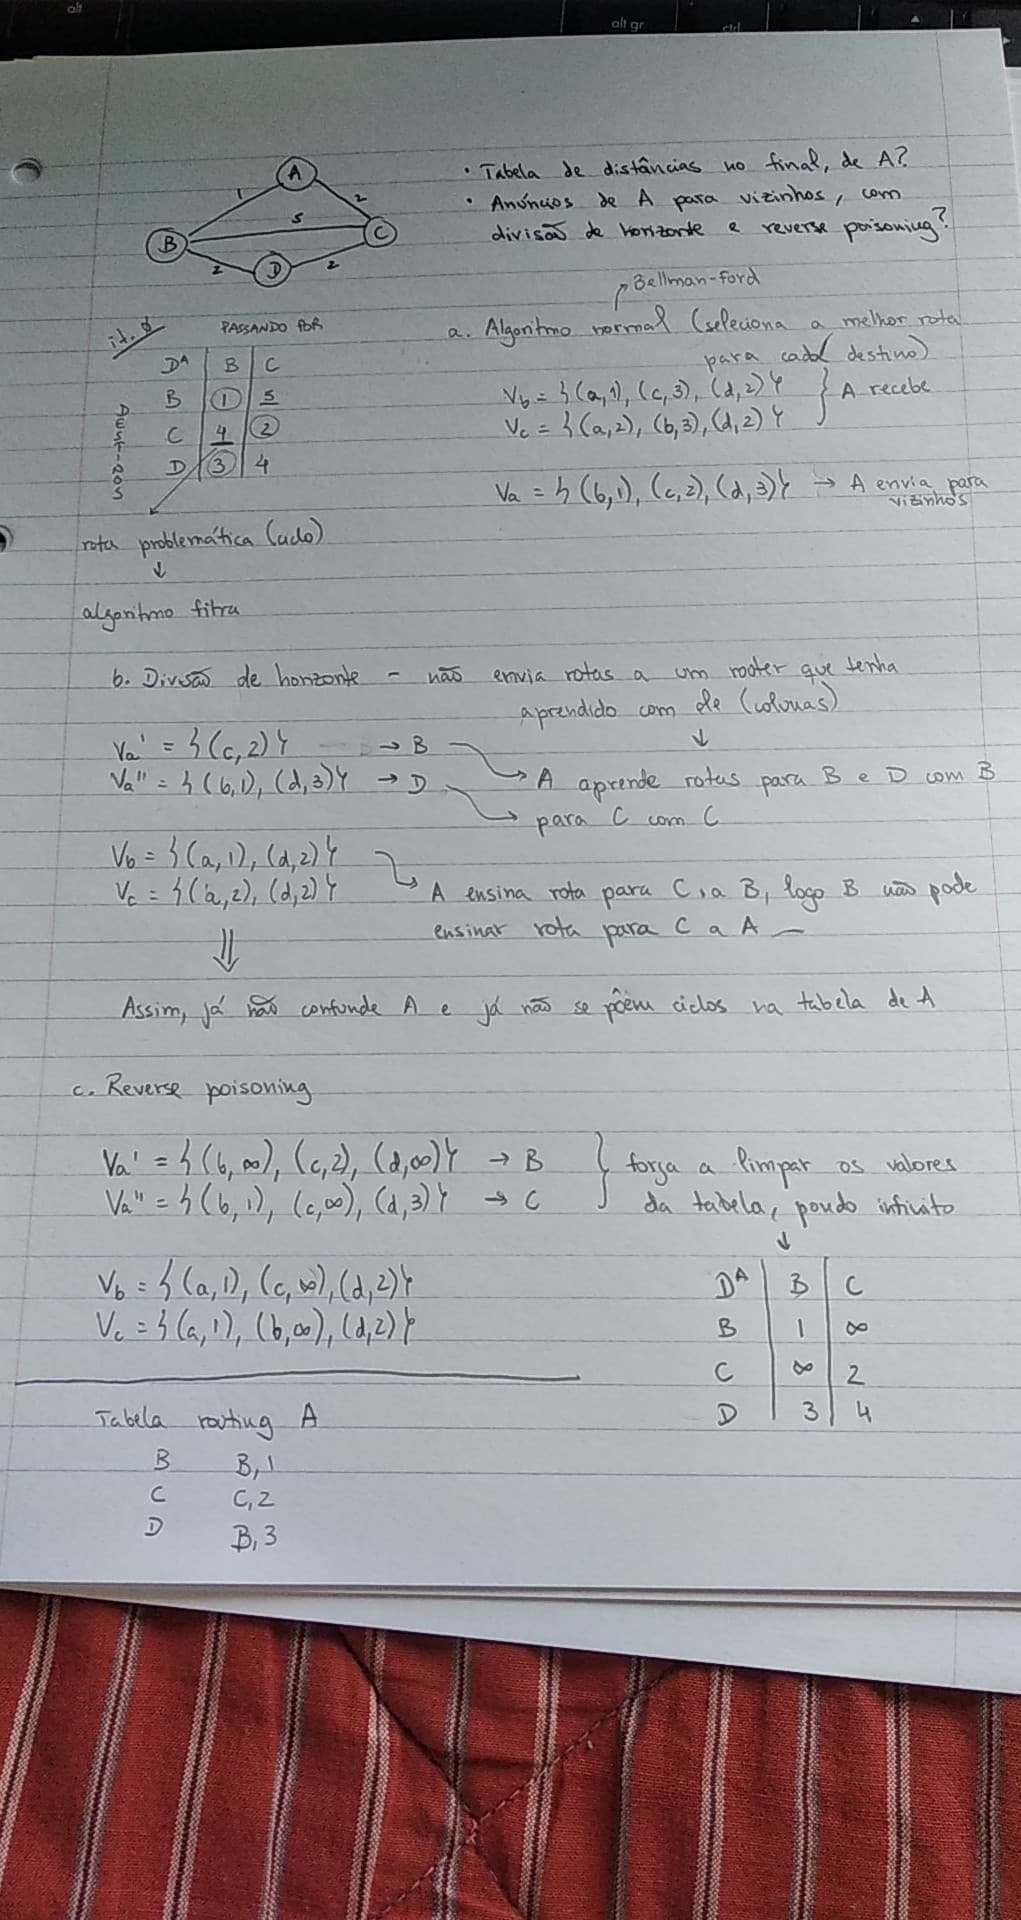 alt
alt gr
ctrl
A
1
2
5
B
C
2
D
2
• Tabela de distâncias no final, de A?
• Anúncios de A para vizinhos, com
divisão de horizonte e reverse poisoning?
it. 0
PASSANDO POR
D^A | B | C
B | 1 | 5
C | 4 | 2
D | 3 | 4
DESTINOS
rota problemática (ciclo)
↓
algoritmo fitra
↗ Bellman-Ford
a. Algoritmo normal (seleciona a melhor rota
para cada destino)
Vb = {(a,1), (c,3), (d,2)}
Vc = {(a,2), (b,3), (d,2)}
} A recebe
Va = {(b,1), (c,2), (d,3)} → A envia para
vizinhos
b. Divisão de horizonte - não envia rotas a um rooter que tenha
aprendido com ele (colunas)
↓
Va' = {(c,2)} → B
Va'' = {(b,1), (d,3)} → D
→ A aprende rotas para B e D com B
→ para C com C
Vb = {(a,1), (d,2)}
Vc = {(a,2), (d,2)}
→ A ensina rota para C, a B, logo B não pode
ensinar rota para C a A —
⇓
Assim, já não confunde A e já não se põem ciclos na tabela de A
c. Reverse poisoning
Va' = {(b,∞), (c,2), (d,∞)} → B
Va'' = {(b,1), (c,∞), (d,3)} → C
} força a limpar os valores
da tabela, pondo infinito
↓
Vb = {(a,1), (c,∞), (d,2)}
Vc = {(a,1), (b,∞), (d,2)}
D^A | B | C
B | 1 | ∞
C | ∞ | 2
D | 3 | 4
Tabela routing A
B B,1
C C,2
D B,3